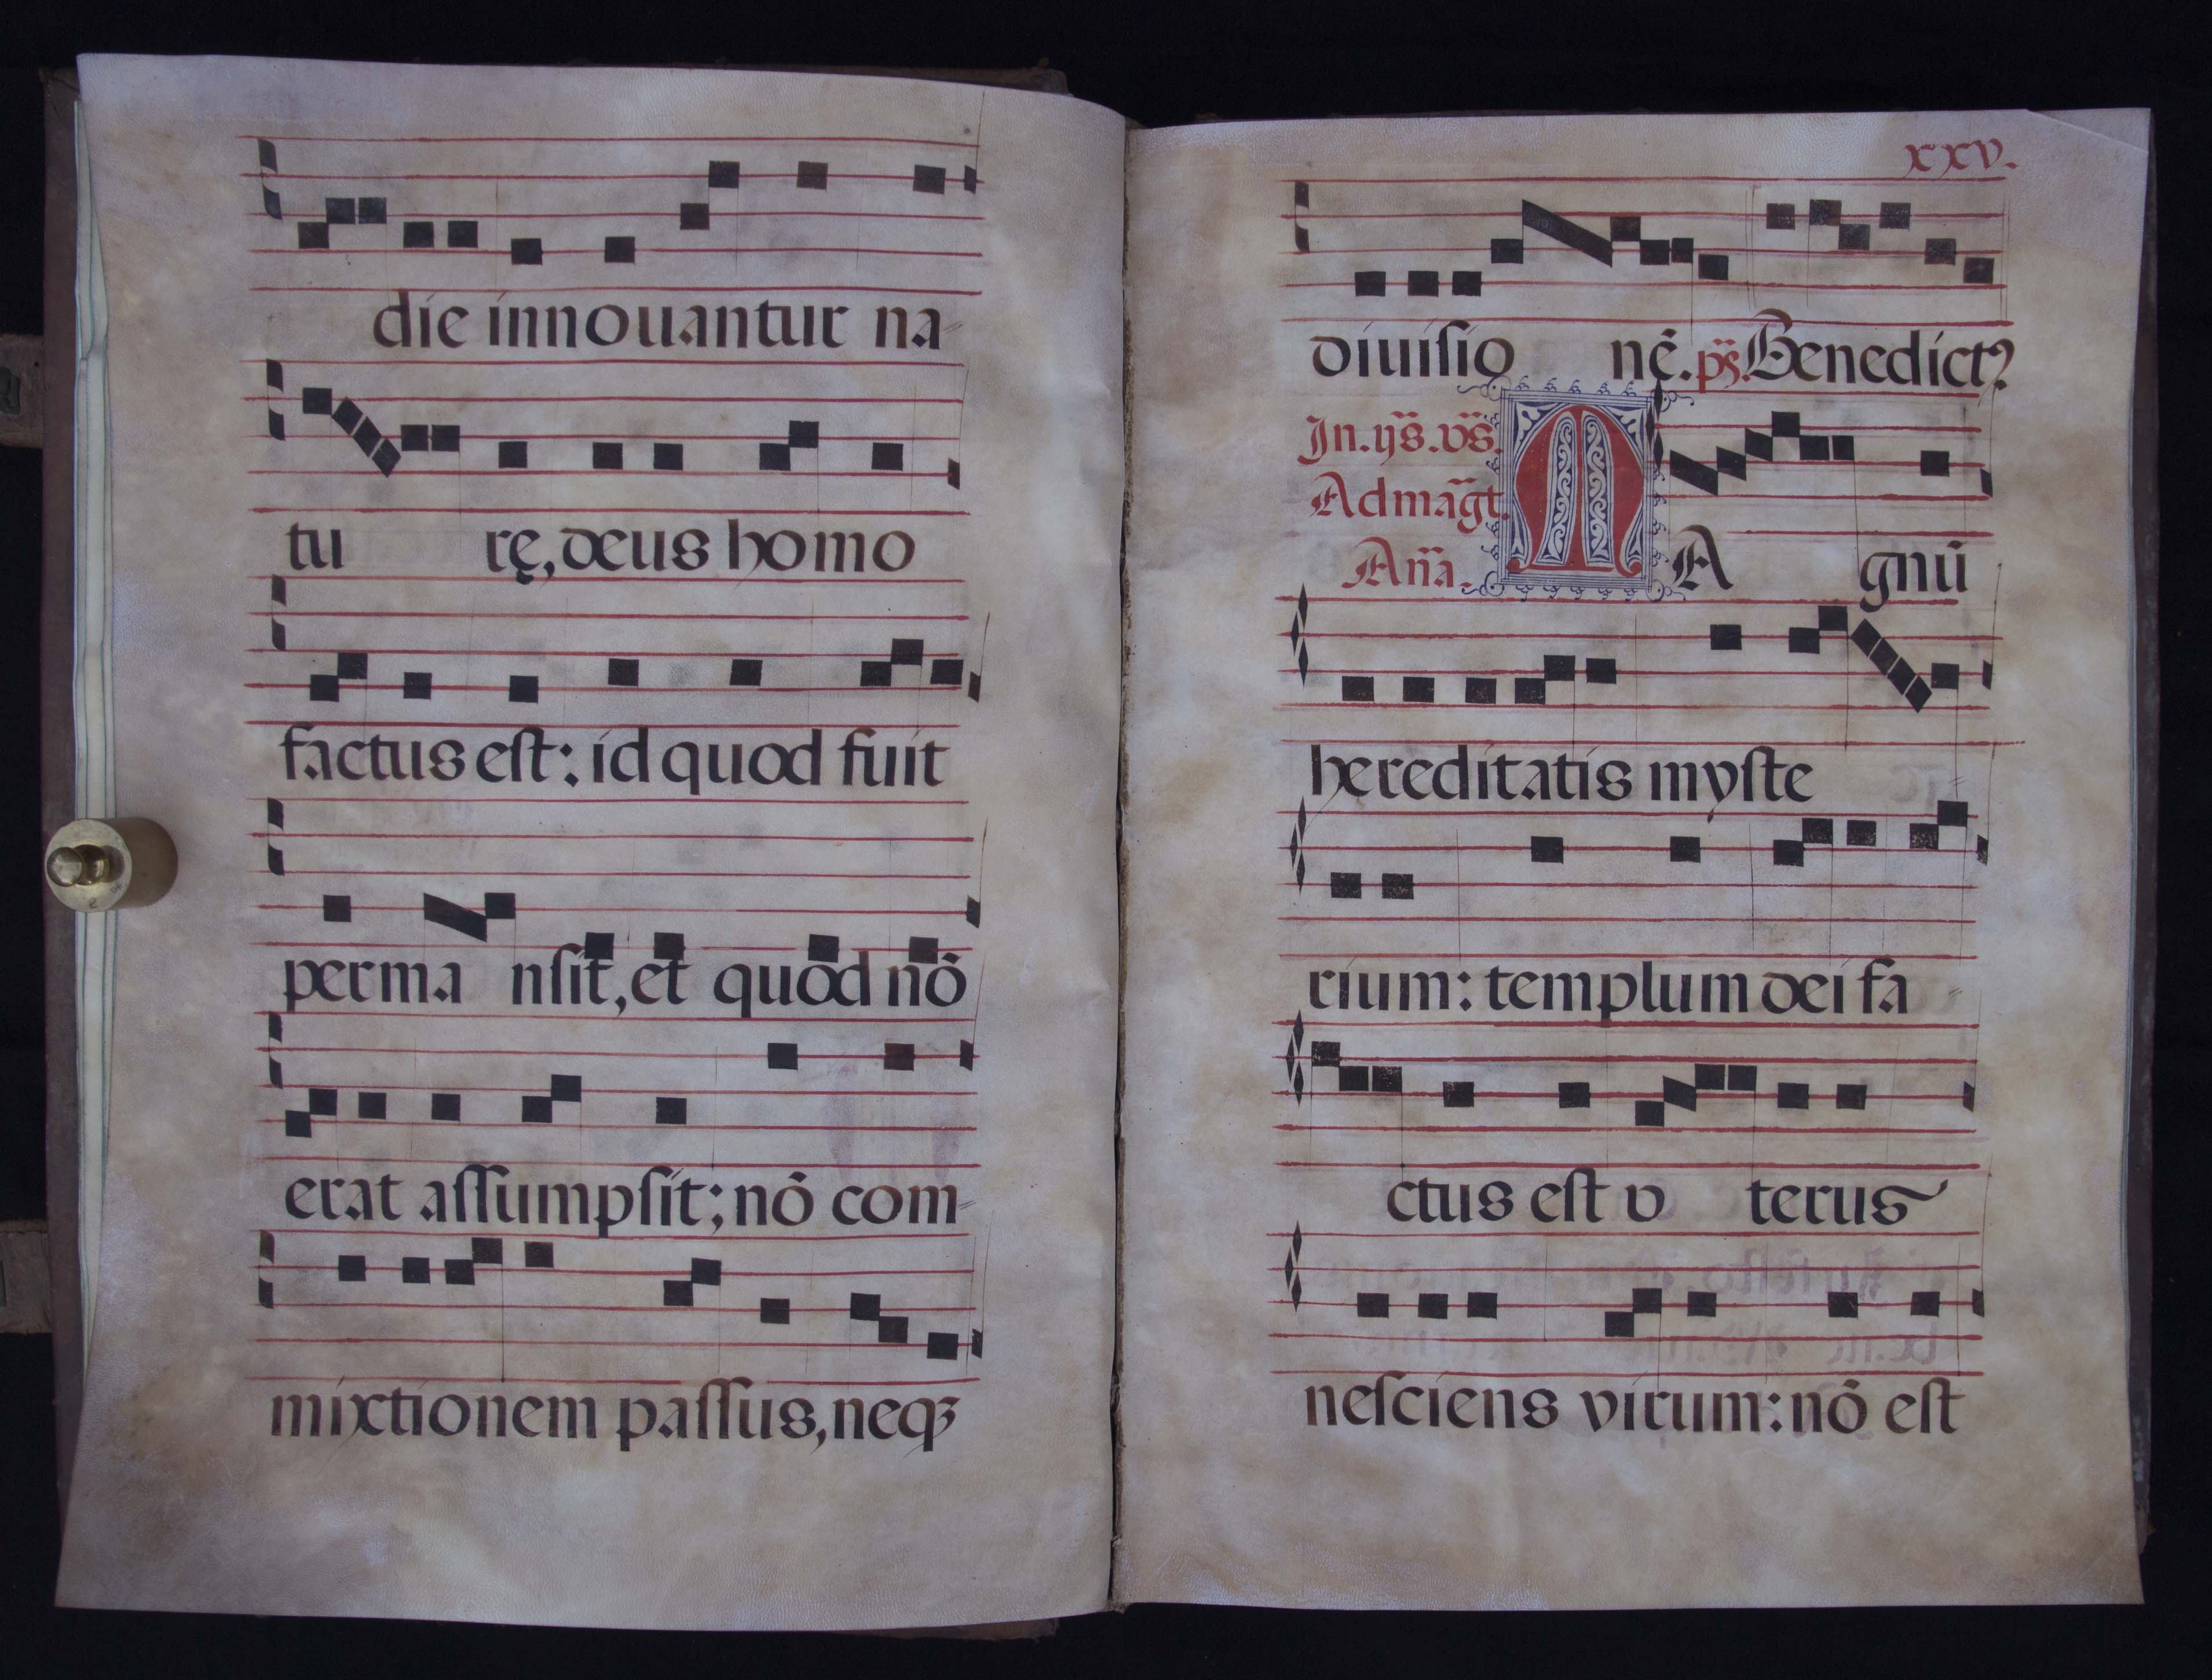 die innouantur na-
tu rę, deus homo
factus eſt: id quod fuit
perma nſit, et quod nō
erat aſſumpſit; nō com-
mixtionem paſſus, neqꝫ
xxv.
diuiſio nē. ps̃. Benedict9
In. ijs̃. vs̃.
Ad mag̃t.
Añа.
MA gnū
hereditatis myſte-
rium: templum dei fa
ctus eſt v terus
neſciens virum: nō eſt